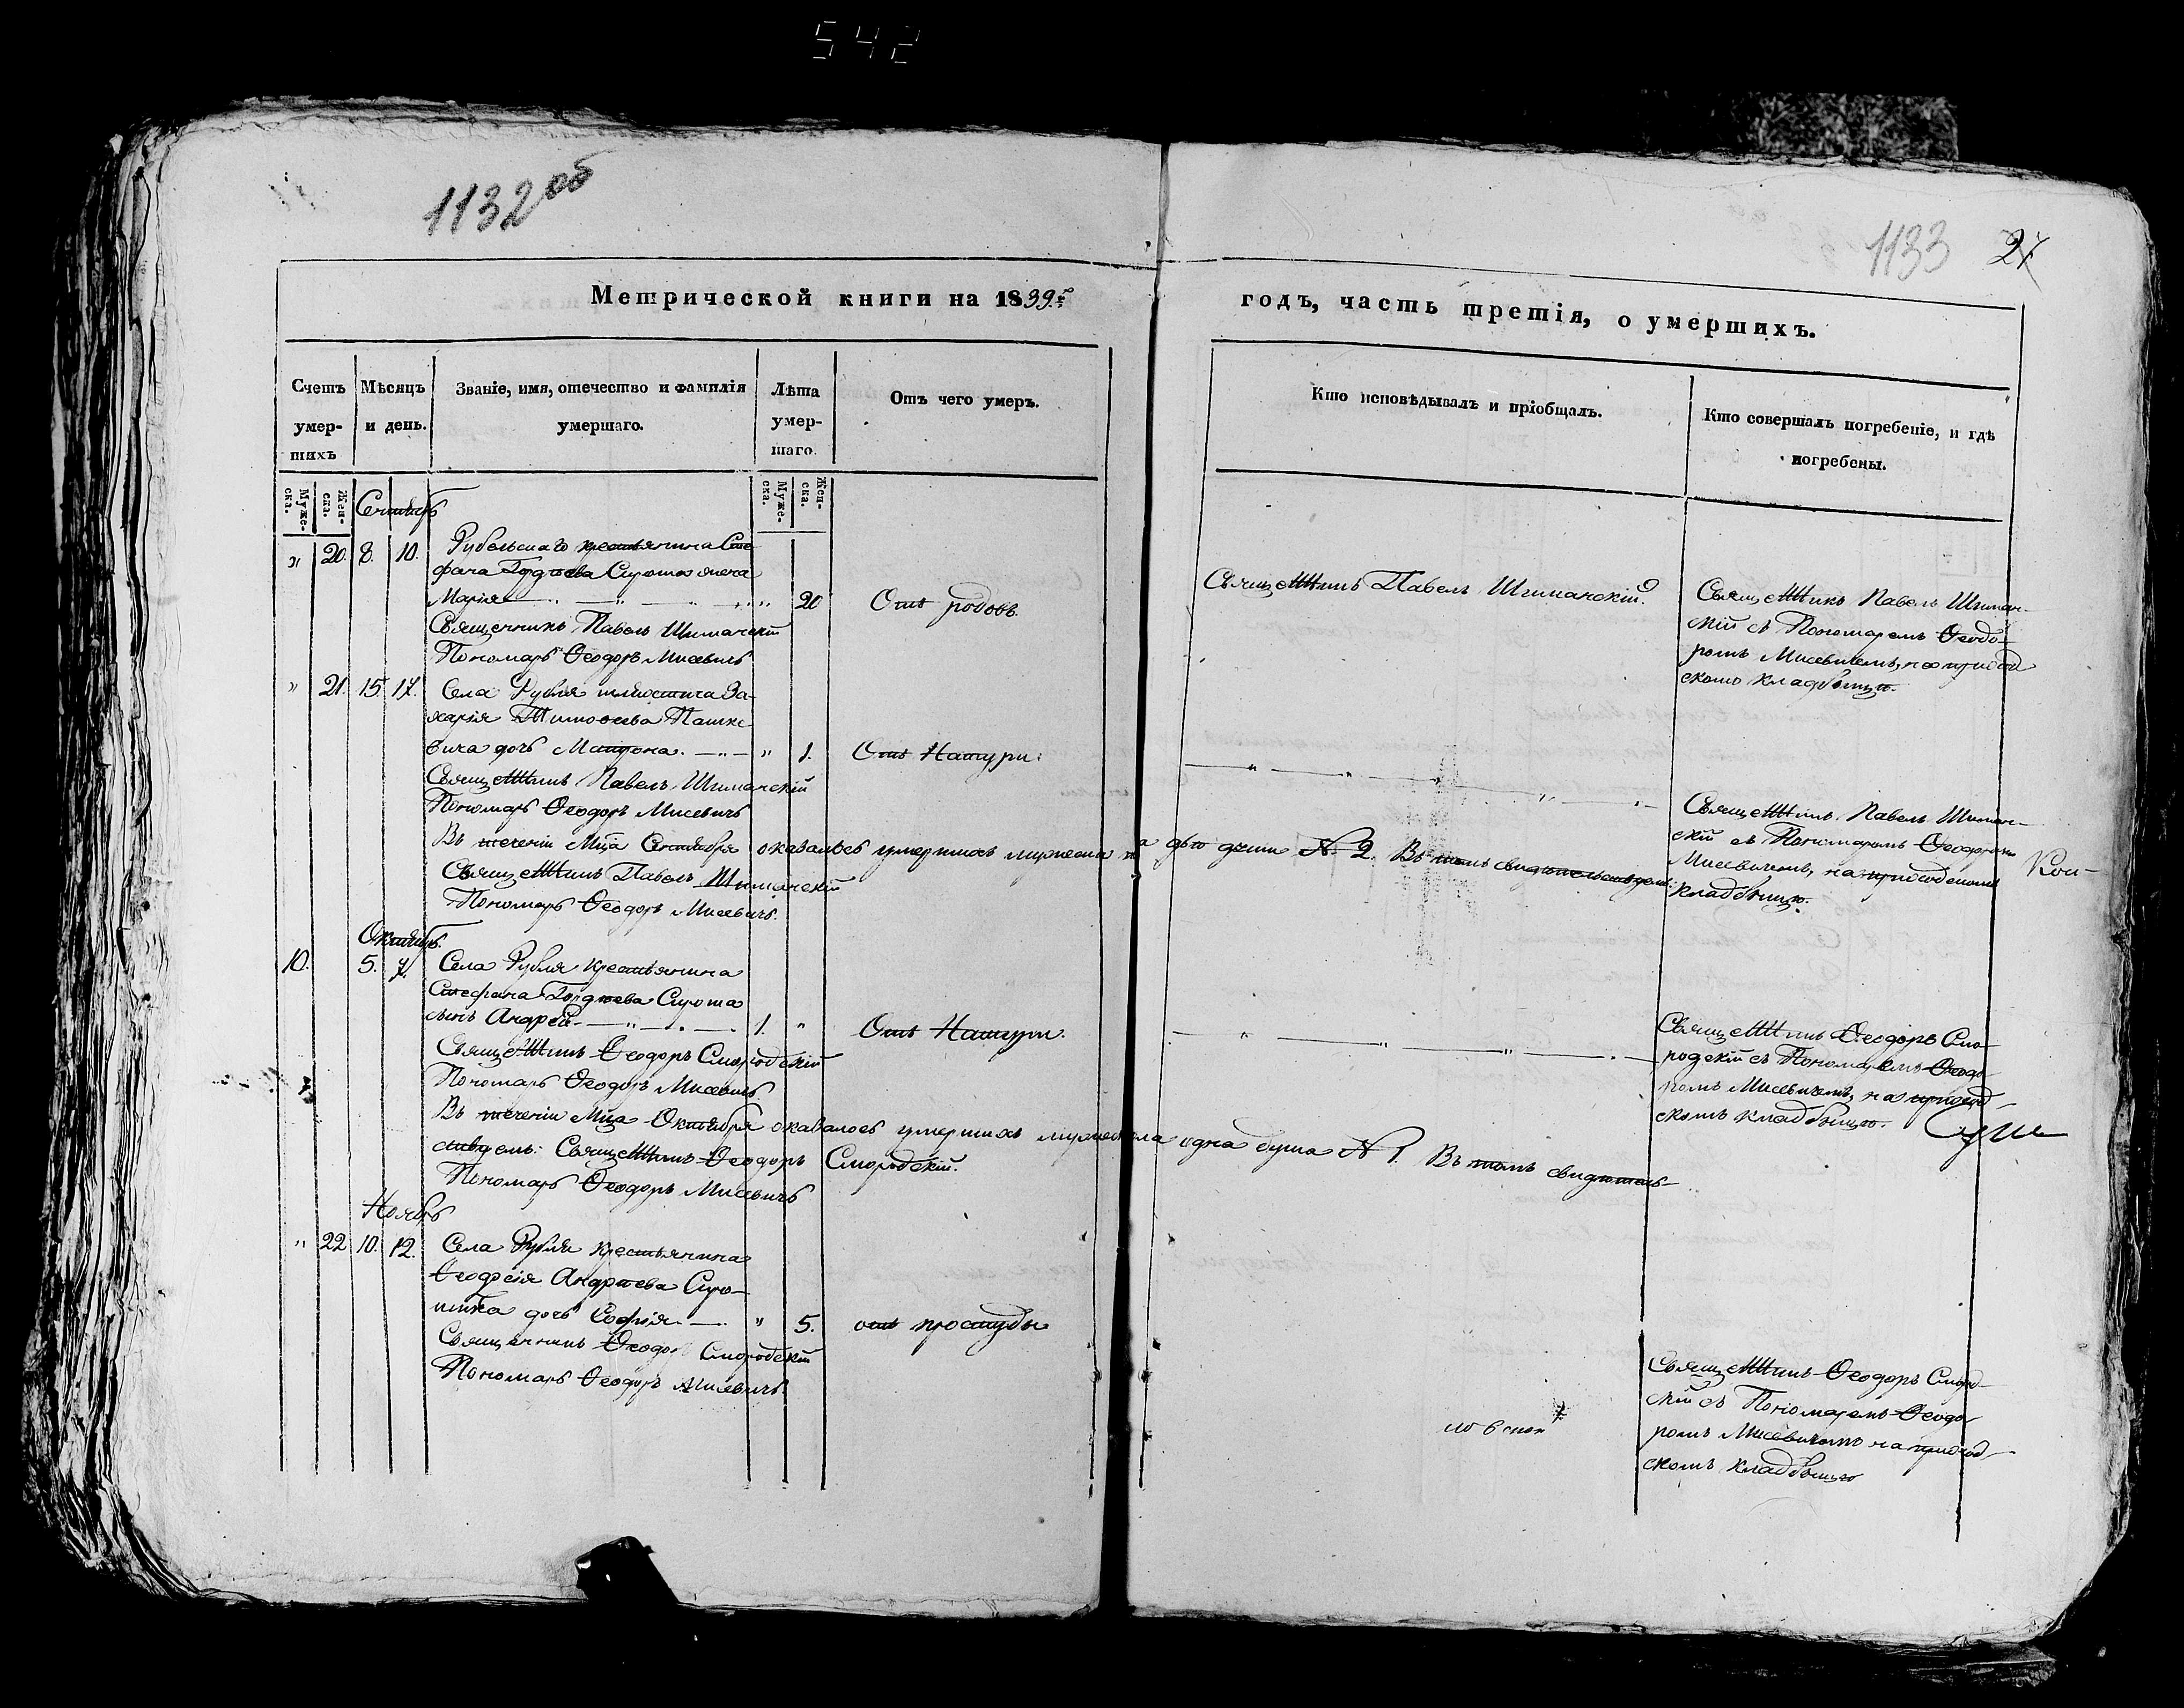 542
1132 об
1133 27
Метрической книги на 1839 г.
годъ, часть третія, о умершихъ.
Счетъ умер-шихъ
Мѣсяцъ и день.
Званіе, имя, отечество и фамилія умершаго.
Лѣта умер-шаго.
Отъ чего умеръ.
Кто исповѣдывалъ и пріобщалъ.
Кто совершалъ погребеніе, и гдѣ погребены.
Муже-ска.
Жен-ска.
Муже-ска.
Жен-ска.
Сентябрь
" 20. 8. 10. Рубельскаго крестьянина Сте-
фана Гордѣева Сирота жена
Марія " 20 Отъ родовъ.
Священникъ Павелъ Шиманскій
Пономарь Ѳеодоръ Мисевичъ
Священникъ Павелъ Шиманскій.
Священникъ Павелъ Шиман-
скій съ Пономаремъ Ѳеодо-
ромъ Мисевичемъ, на приход
скомъ кладбищѣ.
" 21. 15. 17. Села Рубля За-
харія Тимоѳеева Пашке
вича дочь Матрона. " 1. Отъ Натури.
Священникъ Павелъ Шиманскій
Пономарь Ѳеодоръ Мисевичъ
Священникъ Павелъ Шиман-
скій съ Пономаромъ Ѳеодоромъ
Мисевичемъ, на приходскомъ
кладбищѣ.
Въ теченіи Мца Сентября оказалось умершихъ двѣ души № 2. Въ томъ свидѣтельствуемъ:
Священникъ Павелъ Шиманскій
Пономарь Ѳеодоръ Мисевичъ.
Кон-
Октябрь.
10. 5. 7. Села Рубля крестьянина
Стефана Гордѣева Сирота
сынъ Андрей 1. " Отъ Натури.
Священникъ Ѳеодоръ Смородскій
Пономарь Ѳеодоръ Мисевичъ
Священникъ Ѳеодоръ Смо-
родскій съ Пономаремъ Ѳеодо
ромъ Мисевичемъ, на приход-
скомъ кладбищѣ.
Въ теченіи Мца Октября оказалось умершихъ мужеска пола одна душа № 1. Въ томъ свидѣтель-
ствуемъ: Священникъ Ѳеодоръ Смородскій.
Пономарь Ѳеодоръ Мисевичъ
Ноябрь
" 22 10. 12. Села Рубля крестьянина
Андрѣева Сиро-
дочь Софія " 5. отъ простуды
Священникъ Ѳеодоръ Смородскій
Пономарь Ѳеодоръ Мисевичъ
Священникъ Ѳеодоръ Смород-
скій съ Пономаремъ Ѳеодо
ромъ Мисевичемъ на приход-
скомъ кладбищѣ